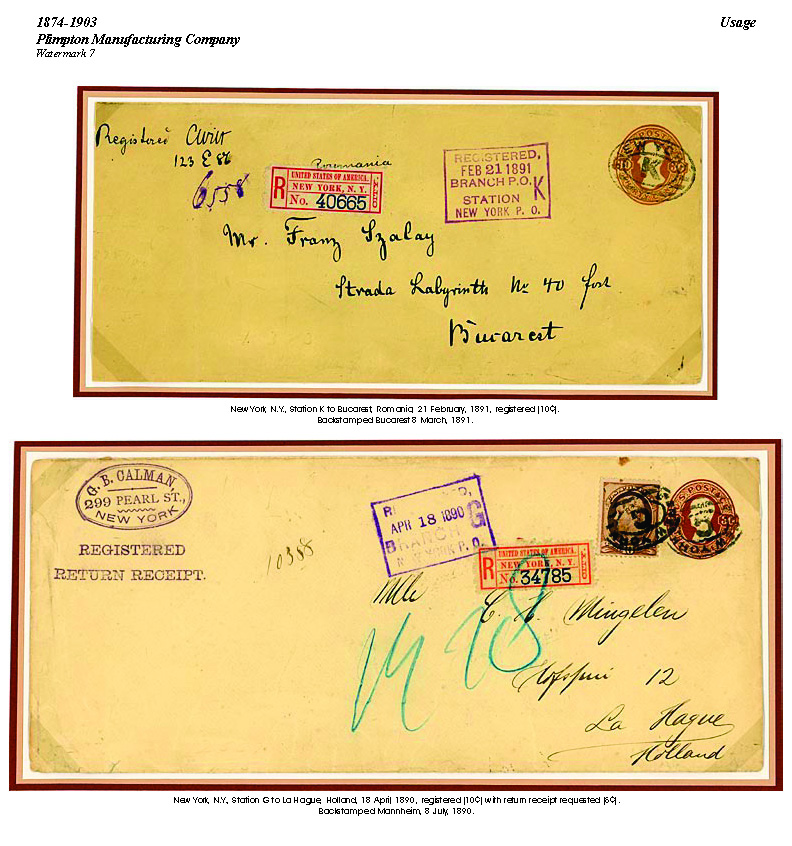 1874-1903
Usage
Plimpton Manufacturing Company
Watermark 7
Registered
123 E 86
Roumania
6558
R
UNITED STATES OF AMERICA.
NEW YORK, N. Y.
No. 40665
REGISTERED,
FEB 21 1891
BRANCH P.O.
STATION K
NEW YORK P. O.
NEW YORK
K
Mr. Franz Szalay
Strada Labyrinth No 40
Bucarest
New York, N.Y., Station K to Bucarest, Romania, 21 February, 1891, registered (10¢).
Backstamped Bucarest 8 March, 1891.
G. B. CALMAN
299 PEARL ST.,
NEW YORK
REGISTERED
RETURN RECEIPT.
10388
APR 18 1890
BRANCH G
NEW YORK P. O.
R
UNITED STATES OF AMERICA.
NEW YORK, N. Y.
No. 34785
U.S. POSTAGE
Mlle C. H. Mingelen
12
La Hague
Holland
New York, N.Y., Station G to La Hague, Holland, 18 April, 1890, registered (10¢) with return receipt requested (5¢).
Backstamped Mannheim, 8 July, 1890.